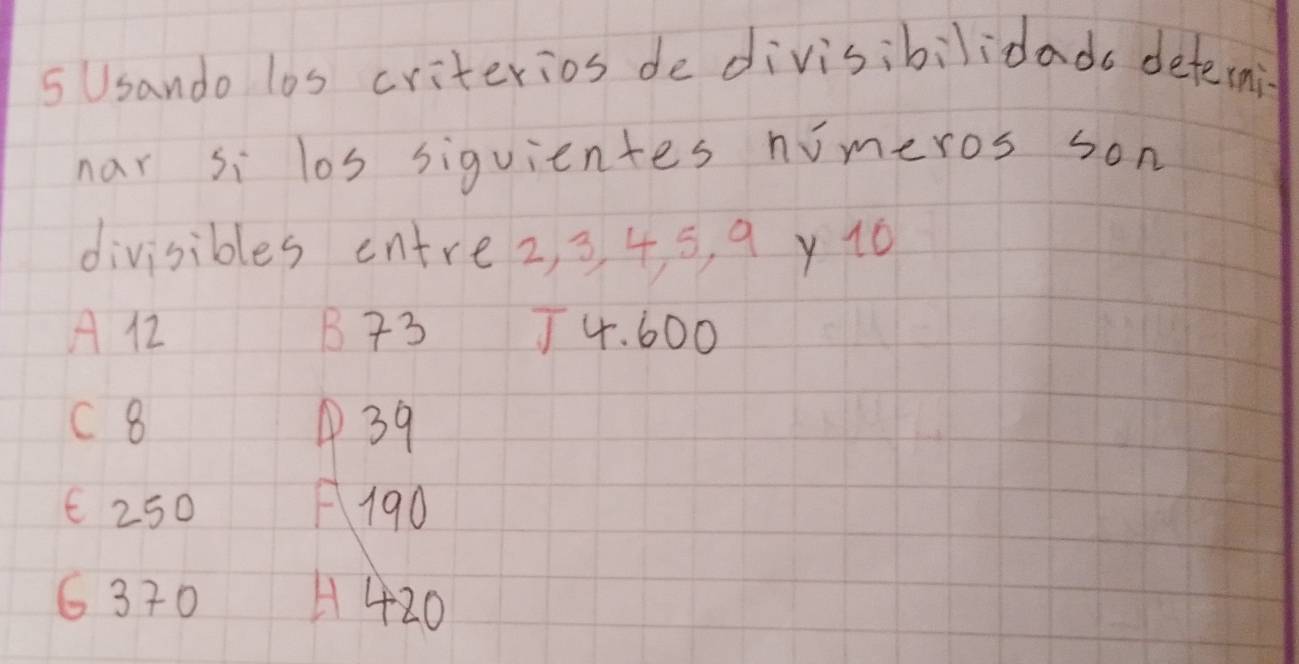 5 Usando los criterios de divisibilidads determi-
nar si los siguientes números son
divisibles entre 2, 3, 4, 5, 9 y 10
A 12 B 73 J 4.600
C 8 D 39
E 250 F 190
G 370 H 420